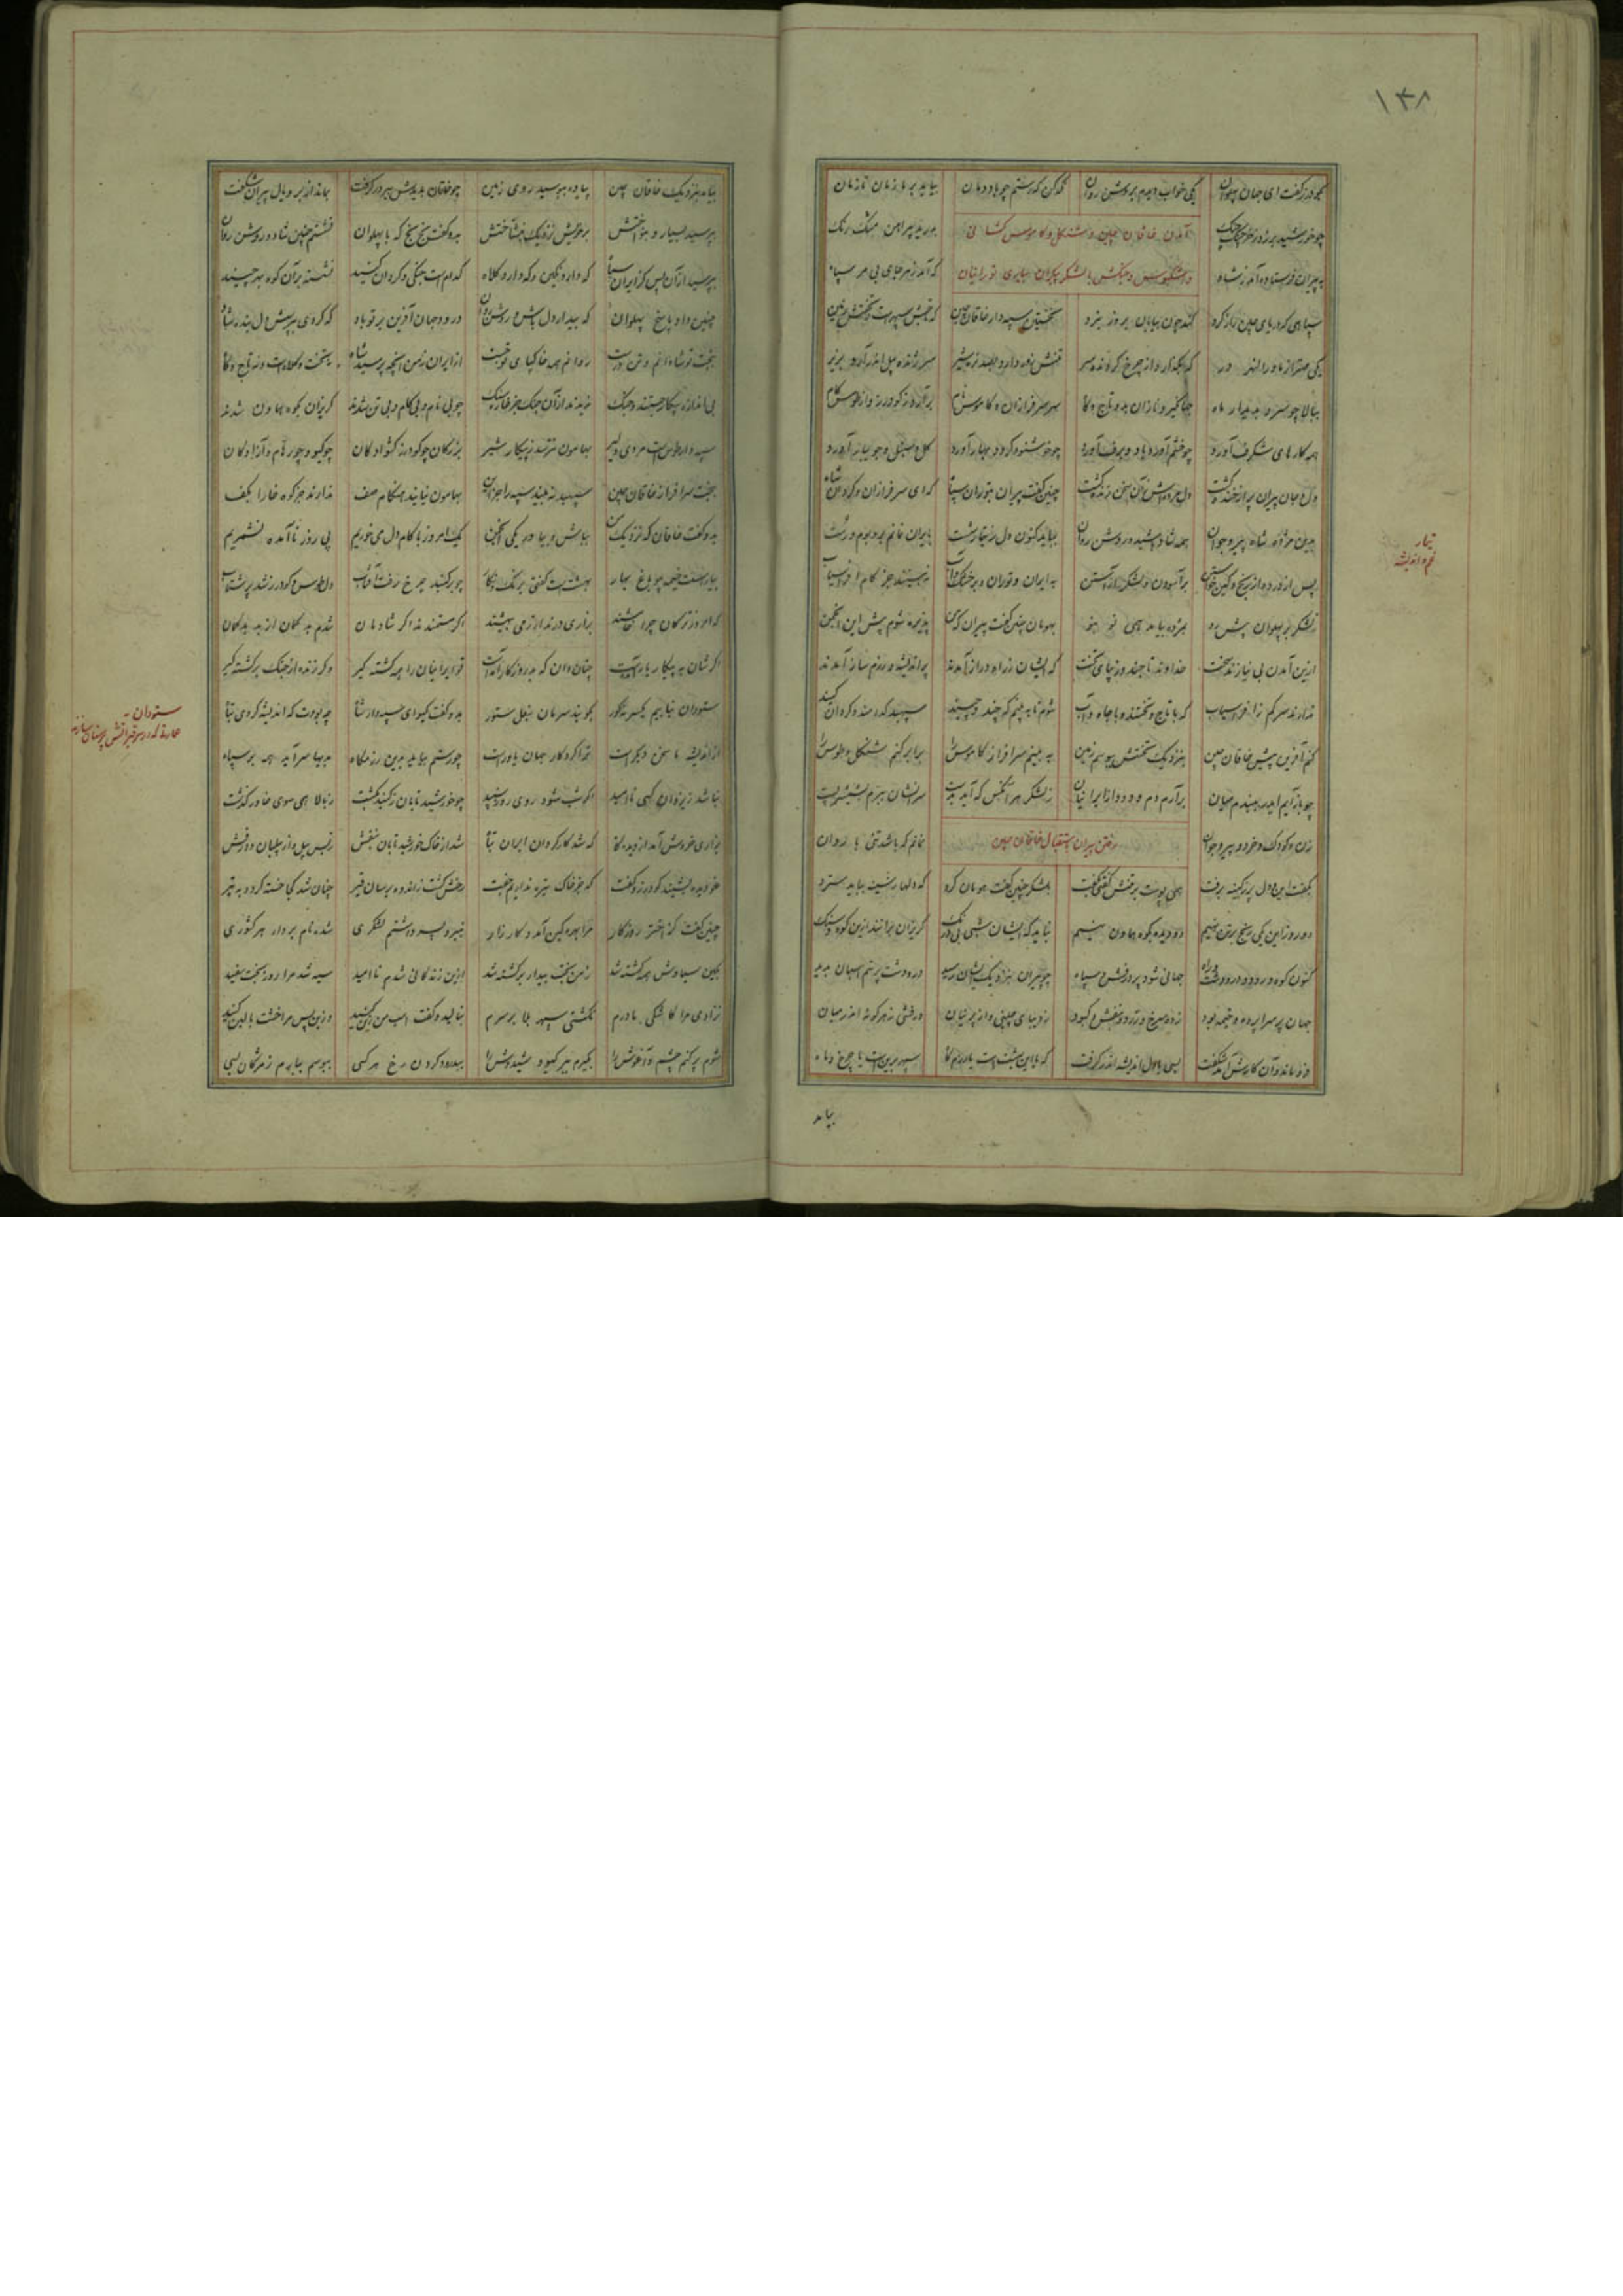 ۱۳۸
بگودرز گفت ای جهان پهلوان یکی خواب دیدم بروشن روان گمان کن که رستم چو باد دمان بیاید بر ما زمان تا زمان
چو خورشید برزد ز خرچنگ چنگ بدرید پیراهن مشک رنگ
آمدن خاقان چین و شنگل و کاموس کشانی
به پیران فرستاده آمد ز شاه که آمد ز هر جای بی مر سپاه
و اشکبوس و جنگش با لشکر بیکران بیاری تورانیان
سپاهی که دریای چین را ز گرد کند چون بیابان بروز نبرد نخستین سپهدار خاقان چین که تختش سپهرست و تختش زمین
یکی مهتر از ماورالنهر در که بگذارد از چرخ گردنده سر تنش زور دارد چو صد نره شیر سر ژنده پیل اندر آرد بزیر
ببالا چو سرو و بدیدار ماه جهانگیر و نازان بدو تاج و گاه سر سرفرازان و کاموس نام برآرد ز گودرز و از طوس کام
همه کارهای شگرف آورد چو خشم آورد باد و برف آورد چو خوشنود گردد بهار آورد گل و سنبل و جویبار آورد
دل و جان پیران پر از خنده گشت چنین گفت پیران بتوران سپاه که ای سرفرازان و گردان شاه
بدین مژده شاه پیر و جوان همه شاد باشید و روشن روان بباید کنون دل ز تیمار شست بایران نمانم بر و بوم و رست
تیمار
غم و اندیشه
پس از درد و از رنج و کین خواستن برآسودن و لشکر آراستن به ایران و توران و بر خشک و آب نبینند جز کام افراسیاب
ز لشکر بر پهلوان پیش رو بمژده بیامد همی نو بنو بهومان چنین گفت پیران که من پذیره شوم پیش این انجمن
ازین آمدن بی نیازند سخت خداوند تاجند و زیبای تخت که ایشان ز راه دراز آمدند پر اندیشه و رزم ساز آمدند
ندارند سر کم ز افراسیاب که با تاج و تختند و با جاه و آب شوم تا ببینم که چند و چیند سپهبد کدامند و گردان کیند
کنم آفرین پیش خاقان چین بنزدیک تختش ببوسم زمین ببینم سرافراز کاموس را برابر کنم شنگل و طوس را
چو بازآیم ایدر ببندم میان برآرم دم و دود از ایرانیان ز لشکر هر آنکس که آید بدست سرانشان ببرم بشمشیر پست
رفتن پیران باستقبال خاقان چین
زن و کودک و خرد و پیر و جوان نمانم که باشد تنی با روان
بگفت این و دل پر ز کینه برفت همی پوست بر تنش گفتی بکفت بلشکر چنین گفت هومان گرد که دلها ز تشیب باید سترد
دو روز این یکی رنج بر تن نهیم دو دیده بکوه هماون نهیم نباید که ایشان شبی بی درنگ گریزان برانند ازین کوه و سنگ
کنون کوه و رود و در و دشت و راه جهانی شود پر درفش سپاه چو پیران بنزدیک ایشان رسید در و دشت پر سم اسپان بدید
جهان پر سراپرده و خیمه بود زده سرخ و زرد و بنفش و کبود ز دیبای چینی و از پرنیان درفشی ز هر گونه اندر میان
فرو ماند و آن کارش آمد شگفت بسی با دل اندیشه اندر گرفت که یا این بهشت است یا رزمگاه سپهر برین است یا چرخ و ماه
بیامد
بیامد بنزدیک خاقان چین پیاده ببوسید روی زمین چو خاقان بدیدش ببر در گرفت بماند از بر و یال پیران شگفت
بپرسید بسیار و بنواختش بر خویش نزدیک بنشاختش بدو گفت بخ بخ که با پهلوان نشستم چنین شاد و روشن روان
بپرسید از آن پس کز ایران سپاه که دارد نگین و که دارد کلاه کدام است جنگی و گردان کیند نشسته برآن کوه بهر چیند
چنین داد پاسخ پهلوان که بیدار دل باش و روشن روان درود جهان آفرین بر تو باد که کردی بپرسش دل بنده شاد
ببخت تو شادانم و تن درست روانم همه خاک پای تو جست از ایران ز من آنچه پرسید شاه نه تخت و کلاه است و نه تاج و گاه
بی اندازه پیکار جستند و جنگ ندیدند از آن جنگ جز خار و سنگ چو بی نام و بی کام و بی تن شدند گریزان بکوه هماون شدند
سپهدار طوس است مردی دلیر بهامون نترسد ز پیکار شیر بزرگان چو گودرز کشوادگان چو گیو و چو رهام و آزادگان
ببخت سرافراز خاقان چین سپهبد نه بیند سپه را جز این بهامون نیایند هنگام صف ندارند جز کوه خارا بکف
بدو گفت خاقان که نزدیک من بباش و بیاور یکی انجمن یک امروز با کام دل می خوریم پی روز ناآمده نشمریم
بیاراست خیمه چو باغ بهار بهشت است گفتی برنگ و نگار چو بر گنبد چرخ رفت آفتاب دل طوس و گودرز شد پر شتاب
که امروز ترکان چرا خامشند براری درند ار ز می بیهشند اگر مستمند ند اگر شادمان شدم بد گمان از بد بدگمان
اگرشان به پیکار یار آمدست چنان دان که بد روزگار آمدست تو ایرانیان را همه کشته گیر وگر زنده از جنگ برگشته گیر
ستودان نیابیم یکسر نه گور بکوبند سرمان بنعل ستور بدو گفت گیو ای سپهدار شاه چه بودت که اندیشه کردی تباه
ستودان
عمارة که در سر قبر آتش پرستان سازند
از اندیشه ما سخن دیگر است ترا کردگار جهان یاور است چو رستم بیاید بدین رزمگاه بدیها سرآید همه بر سپاه
نباشد ز یزدان کسی ناامید اگر شب شود روی روز سپید چو خورشید تابان ز گنبد بگشت ز بالا همی سوی خاور گذشت
بزاری خروش آمد از دیده گاه که شد کار گردان ایران تباه شد از خاک خورشید تابان بنفش ز بس پیل و از پیلبان و درفش
غو دیده بشنید گودرز و گفت که جز خاک تیره نداریم جفت رخش گشت ز اندوه برسان قیر چنان شد کجا خسته گردد به تیر
چنین گفت کز اختر روزگار مرا بهره کین آمد و کارزار نبیره پسر داشتم لشکری شده نام بردار هر کشوری
بکین سیاوش همه کشته شد ز من بخت بیدار برگشته شد ازین زندگانی شدم ناامید سیه شد مرا روز بخت سفید
نزادی مرا کاشکی مادرم نگشتی سپهر بلا بر سرم بنالید و گفت اسب من زین کنید وزین پس مرا خشت بالین کنید
شوم بر کنم چشم و آغوش را بگیرم ببر گیو و شیدوش را ببدرود کردن رخ هر کسی ببوسم ببارم ز مژگان بسی